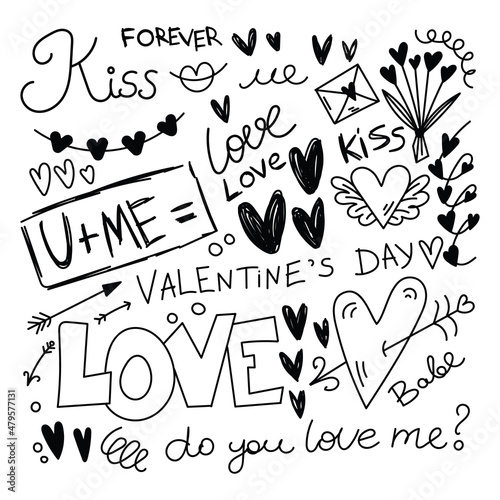 FOREVER
Kiss me
Love
LOVE
KiSS
U+ME=
VALENTiNE'S DAY
LOVE
Babe
do you love me?
Adobe Stock | #479577131